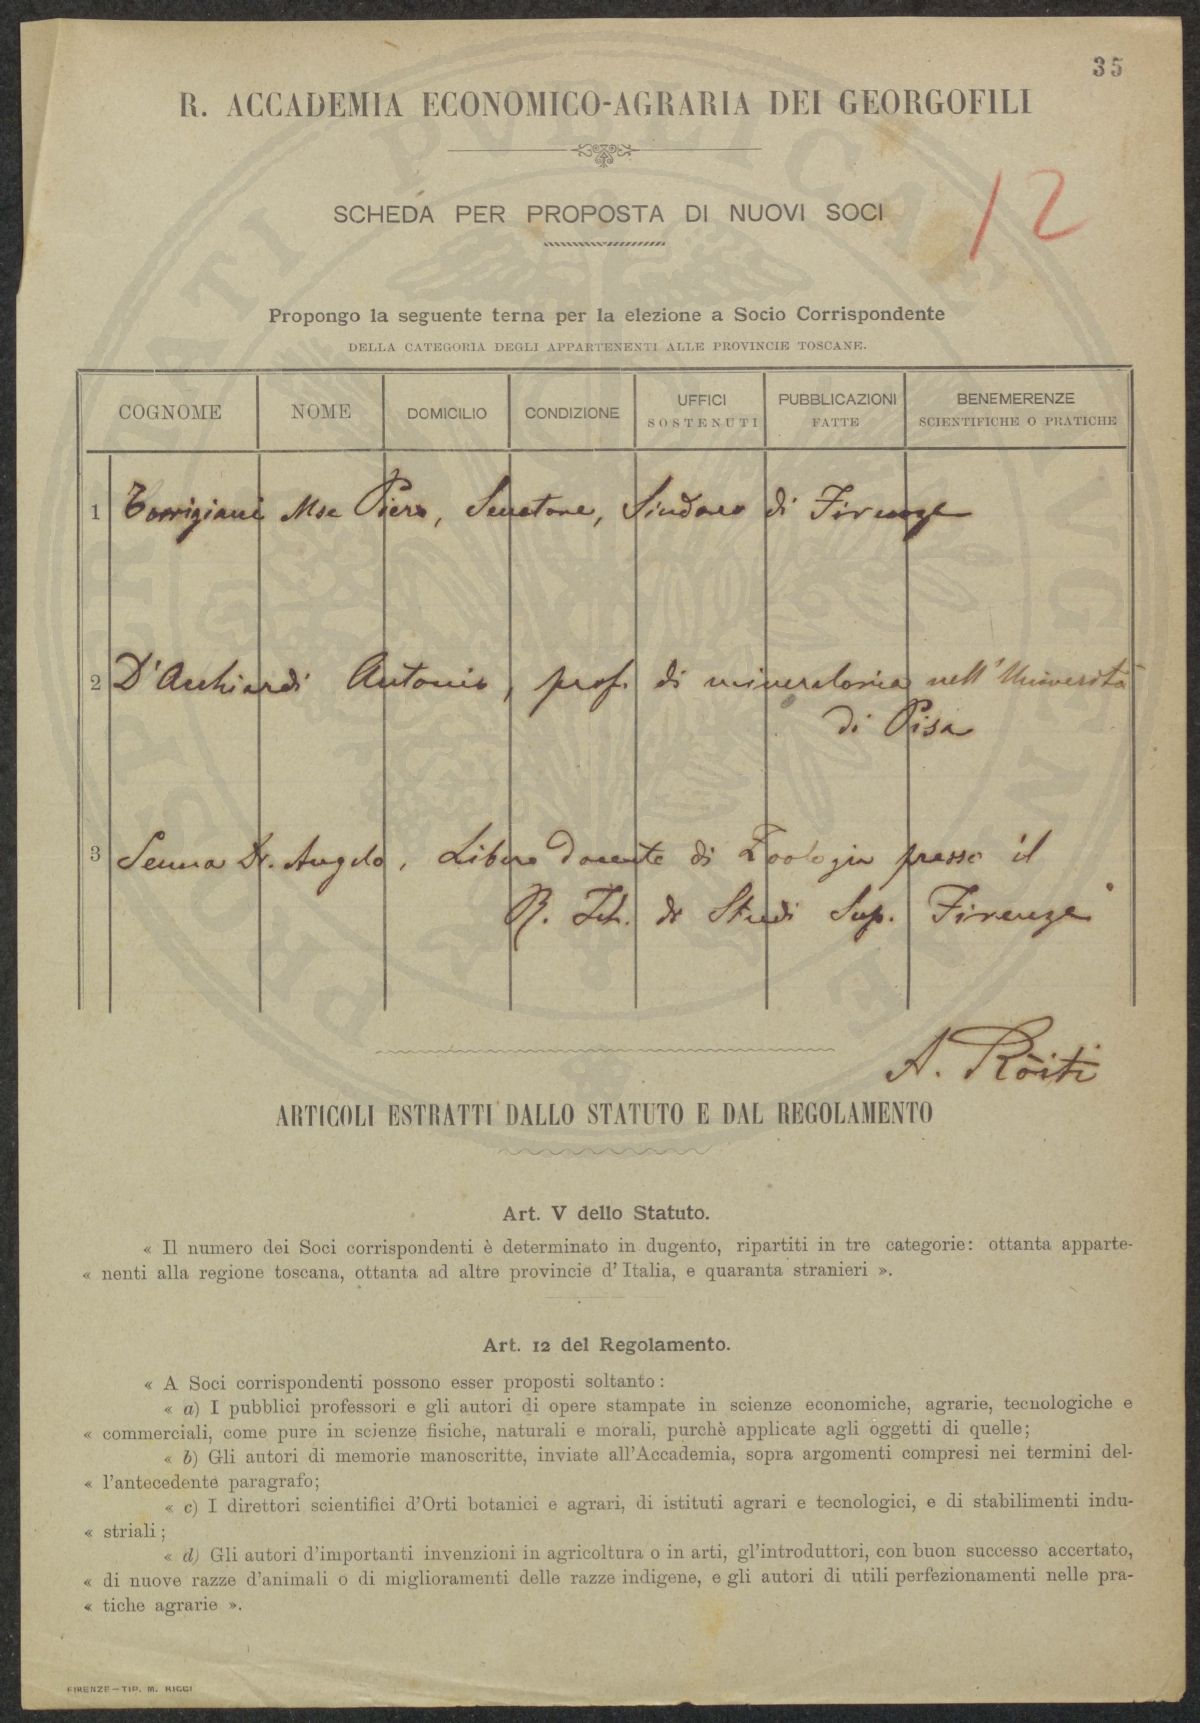 35
R. ACCADEMIA ECONOMICO-AGRARIA DEI GEORGOFILI
12
SCHEDA PER PROPOSTA DI NUOVI SOCI
Propongo la seguente terna per la elezione a Socio Corrispondente
DELLA CATEGORIA DEGLI APPARTENENTI ALLE PROVINCIE TOSCANE.
COGNOME NOME DOMICILIO CONDIZIONE UFFICI SOSTENUTI PUBBLICAZIONI FATTE BENEMERENZE SCIENTIFICHE O PRATICHE
1 Torrigiani Mse Piero, Senatore, Sindaco di Firenze
2 D'Acchiardi Antonio, prof. di mineralogia nell'Università
di Pisa
3 Senna Dr. Angelo, Libero docente di Zoologia presso il
R. Ist. di Studi Sup. Firenze
A. Ròiti
ARTICOLI ESTRATTI DALLO STATUTO E DAL REGOLAMENTO
Art. V dello Statuto.
« Il numero dei Soci corrispondenti è determinato in dugento, ripartiti in tre categorie: ottanta apparte-
« nenti alla regione toscana, ottanta ad altre provincie d'Italia, e quaranta stranieri ».
Art. 12 del Regolamento.
« A Soci corrispondenti possono esser proposti soltanto:
« a) I pubblici professori e gli autori di opere stampate in scienze economiche, agrarie, tecnologiche e
« commerciali, come pure in scienze fisiche, naturali e morali, purchè applicate agli oggetti di quelle;
« b) Gli autori di memorie manoscritte, inviate all'Accademia, sopra argomenti compresi nei termini del-
« l'antecedente paragrafo;
« c) I direttori scientifici d'Orti botanici e agrari, di istituti agrari e tecnologici, e di stabilimenti indu-
« striali;
« d) Gli autori d'importanti invenzioni in agricoltura o in arti, gl'introduttori, con buon successo accertato,
« di nuove razze d'animali o di miglioramenti delle razze indigene, e gli autori di utili perfezionamenti nelle pra-
« tiche agrarie ».
FIRENZE—TIP. M. RICCI
PROSPERITATI PVBLICAE AVGENDAE